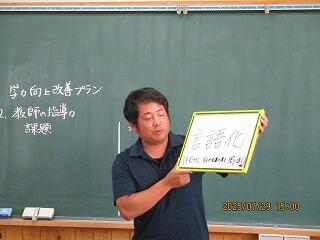 学力向上改善プラン
2. 教師の指導力
課題
言語化
2025/07/29 15:00